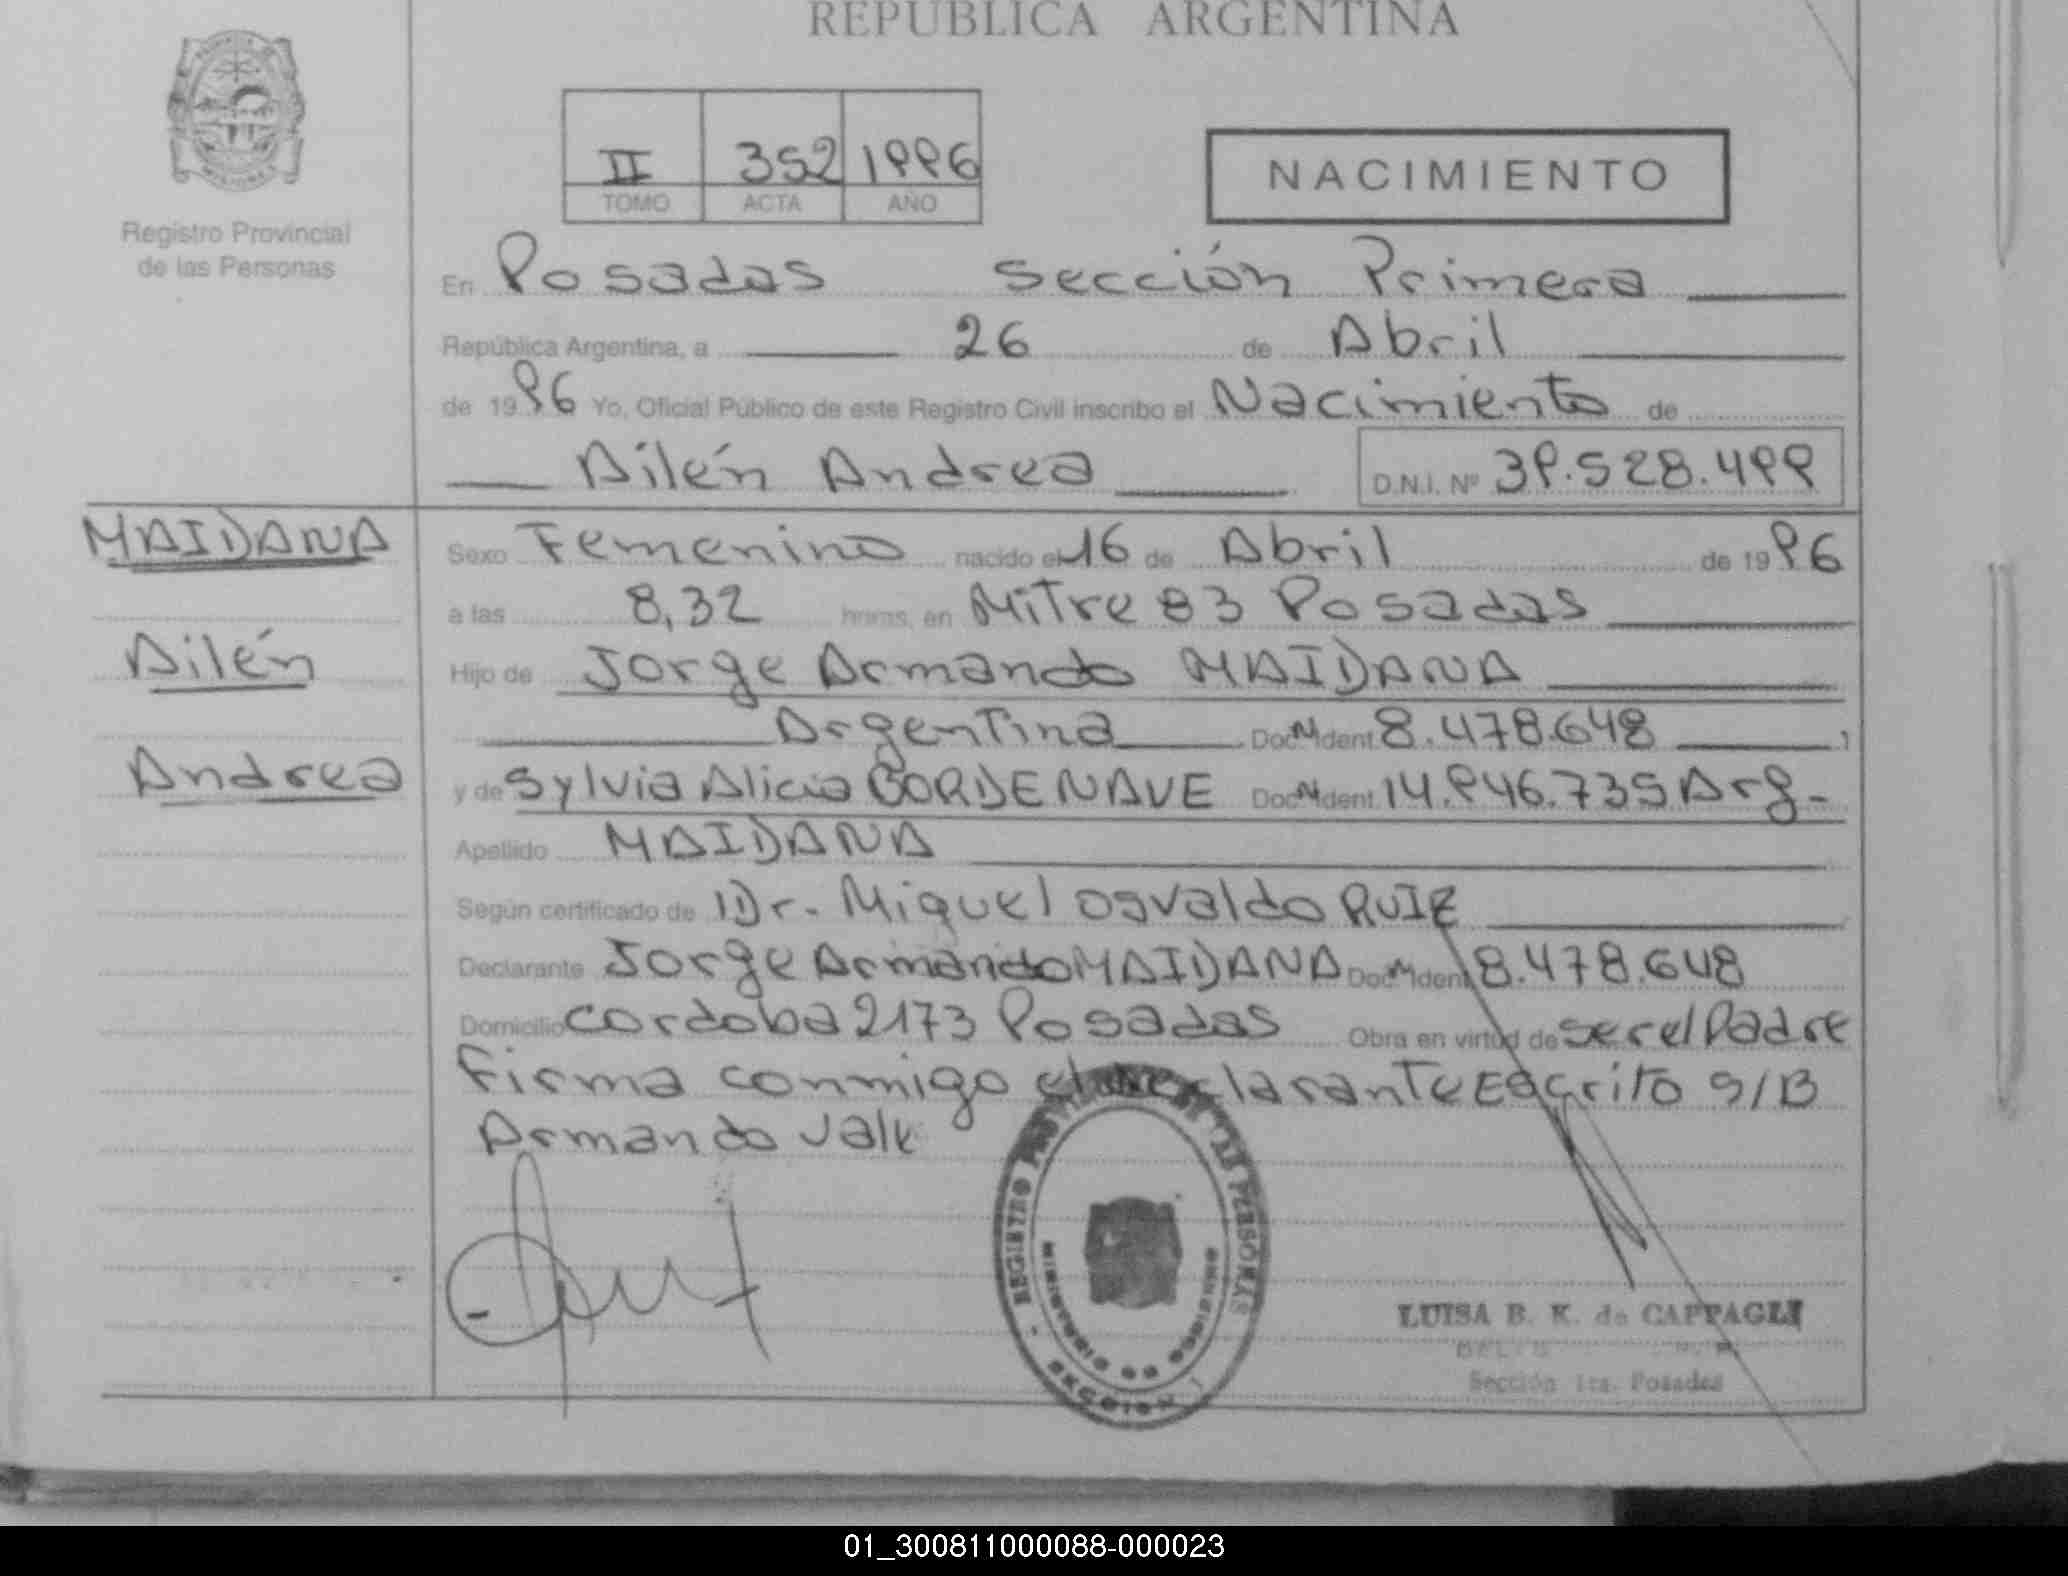 REPUBLICA ARGENTINA
II 352 1996
TOMO ACTA AÑO
NACIMIENTO
Registro Provincial
de las Personas
En Posadas Sección Primera
República Argentina, a 26 de Abril
de 1996 Yo, Oficial Público de este Registro Civil inscribo el Nacimiento de
Ailén Andrea D.N.I. Nº 39.528.499
MAIDANA
Ailén
Andrea
Sexo Femenino nacido el 16 de Abril de 1996
a las 8,32 horas, en Mitre 83 Posadas
Hijo de Jorge Armando MAIDANA
Argentina Doc. Ident. 8.478.648
y de Sylvia Alicia BORDENAVE Doc. Ident. 14.946.735 Arg-
Apellido MAIDANA
Según certificado de Dr. Miguel Osvaldo RUIZ
Declarante Jorge Armando MAIDANA Doc. Ident. 8.478.648
Domicilio Cordoba 2173 Posadas Obra en virtud de ser el Padre
Firma conmigo el declarante Escrito S/B
Armando Vale
REGISTRO PROVINCIAL DE LAS PERSONAS
MINISTERIO DE GOBIERNO
SECCION 1
LUISA B. K. de CAPPAGLI
Sección 1ra. Posadas
01_300811000088-000023